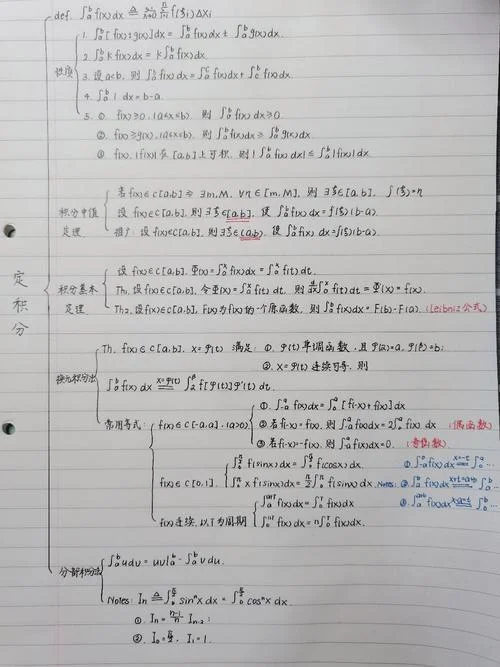 def. ∫_a^b f(x)dx ≜ lim_{λ→0} Σ_{i=1}^n f(ξi)ΔXi
定积分
性质
1. ∫_a^b [f(x)±g(x)]dx = ∫_a^b f(x)dx ± ∫_a^b g(x)dx.
2. ∫_a^b kf(x)dx = k∫_a^b f(x)dx.
3. 设a<b, 则 ∫_a^b f(x)dx = ∫_a^c f(x)dx + ∫_c^b f(x)dx.
4. ∫_a^b 1 dx = b-a.
5. ①. f(x)≥0, (a≤x≤b). 则 ∫_a^b f(x)dx≥0.
②. f(x)≥g(x), (a≤x≤b). 则 ∫_a^b f(x)dx ≥ ∫_a^b g(x)dx.
③. f(x), |f(x)| 在 [a,b]上可积, 则 |∫_a^b f(x)dx| ≤ ∫_a^b |f(x)|dx.
积分中值定理
若f(x)∈C[a,b] ⇒ ∃m,M, ∀η∈[m,M], 则∃ξ∈[a,b], f(ξ)=η
设f(x)∈C[a,b], 则∃ξ∈[a,b], 使∫_a^b f(x)dx=f(ξ)(b-a).
推广: 设f(x)∈C[a,b], 则∃ξ∈(a,b), 使∫_a^b f(x)dx=f(ξ)(b-a).
积分基本定理
设f(x)∈C[a,b], Φ(x)=∫_a^x f(x)dx=∫_a^x f(t)dt.
Th1. 设f(x)∈C[a,b], 令Φ(x)=∫_a^x f(t)dt, 则 d/dx ∫_a^x f(t)dt = Φ'(x) = f(x).
Th2. 设f(x)∈C[a,b], F(x)为f(x)的一个原函数, 则∫_a^b f(x)dx = F(b)-F(a). (Leibniz公式)
换元积分法
Th. f(x)∈C[a,b], x=φ(t) 满足: ①. φ(t)单调函数, 且φ(α)=a, φ(β)=b;
②. x=φ(t)连续可导, 则
∫_a^b f(x)dx =(x=φ(t))= ∫_α^β f[φ(t)]φ'(t)dt.
常用等式:
f(x)∈C[-a,a], (a>0)
①. ∫_{-a}^a f(x)dx=∫_0^a [f(-x)+f(x)]dx
②. 若f(-x)=f(x), 则∫_{-a}^a f(x)dx=2∫_0^a f(x)dx (偶函数)
③. 若f(-x)=-f(x), 则∫_{-a}^a f(x)dx=0. (奇函数)
f(x)∈C[0,1].
∫_0^{π/2} f(sinx)dx=∫_0^{π/2} f(cosx)dx.
∫_0^π xf(sinx)dx=π/2 ∫_0^π f(sinx)dx.
f(x)连续, 以T为周期
∫_a^{a+T} f(x)dx=∫_0^T f(x)dx
∫_0^{nT} f(x)dx=n∫_0^T f(x)dx.
Notes:
①. ∫_{-a}^0 f(x)dx =(x=-t)= ∫_0^a …
②. ∫_a^b f(x)dx =(x+t=a+b)= ∫_a^b …
分部积分法
∫_a^b udv = uv|_a^b - ∫_a^b vdu.
Notes: In ≜ ∫_0^{π/2} sinⁿx dx = ∫_0^{π/2} cosⁿx dx.
①. In = (n-1)/n I_{n-2};
②. I0=π/2, I1=1.